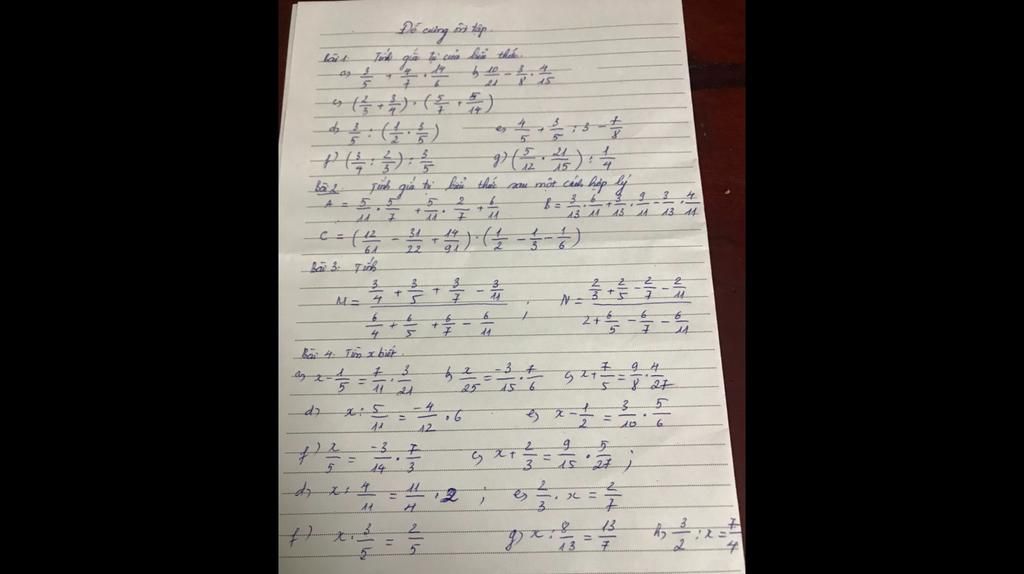 Đề cương ôn tập.
Bài 1. Tính giá trị của biểu thức.
a) 3/5 + 4/7 . 14/6 b) 10/21 - 3/8 . 4/15
c) (2/3 + 3/4) . (5/7 + 5/14)
d) 3/5 : (1/2 . 3/5) e) 4/5 + 3/5 : 3 - 7/8
f) (3/4 : 2/3) : 3/5 g) (5/12 . 21/15) : 1/4
Bài 2. Tính giá trị biểu thức sau một cách hợp lý
A = 5/11 . 5/7 + 5/11 . 2/7 + 6/11 B = 3/13 . 6/11 + 3/13 . 9/11 - 3/13 . 4/11
C = (12/61 - 31/22 + 14/91) . (1/2 - 1/3 - 1/6)
Bài 3: Tính
M = (3/4 + 3/5 + 3/7 - 3/11)/(6/4 + 6/5 + 6/7 - 6/11) ; N = (2/3 + 2/5 - 2/7 - 2/11)/(2 + 6/5 - 6/7 - 6/11)
Bài 4. Tìm x biết.
a) x - 1/5 = 7/11 . 3/21 b) x/25 = -3/15 . 7/6 c) x + 7/5 = 9/8 . 4/27
d) x : 5/11 = -4/12 . 6 e) x - 1/2 = 3/10 . 5/6
f) x/5 = -3/14 . 7/3 c) x + 2/3 = 9/15 . 5/27 ;
d) x : 4/11 = 11/4 . 2 ; e) 2/3 . x = 2/7
f) x . 3/5 = 2/5 g) x : 8/13 = 13/7 h) 3/2 : x = 7/4